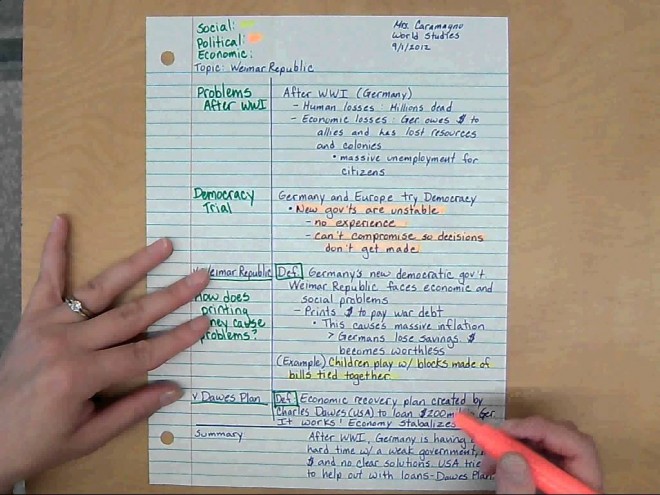 Social:
Political:
Economic:
Mrs. Caramagno
World Studies
9/1/2012
Topic: Weimar Republic
Problems
After WWI
After WWI (Germany)
- Human losses: Millions dead
- Economic losses: Ger owes $ to
allies and has lost resources
and colonies
• massive unemployment for
citizens
Democracy
Trial
Germany and Europe try Democracy
• New gov'ts are unstable
- no experience
- can't compromise so decisions
don't get made
Weimar Republic
Def. Germany's new democratic gov't
Weimar Republic faces economic and
social problems
How does
printing
cause
problems?
- Prints $ to pay war debt
• This causes massive inflation
> Germans lose savings. $
becomes worthless
(Example) Children play w/ blocks made of
bills tied together
v Dawes Plan
Def. Economic recovery plan created by
Charles Dawes (USA) to loan $200 Ger.
It works! Economy stabalizes
Summary
After WWI, Germany is having
hard time w/ a weak government,
$ and no clear solutions. USA
to help out with loans-Dawes Plan